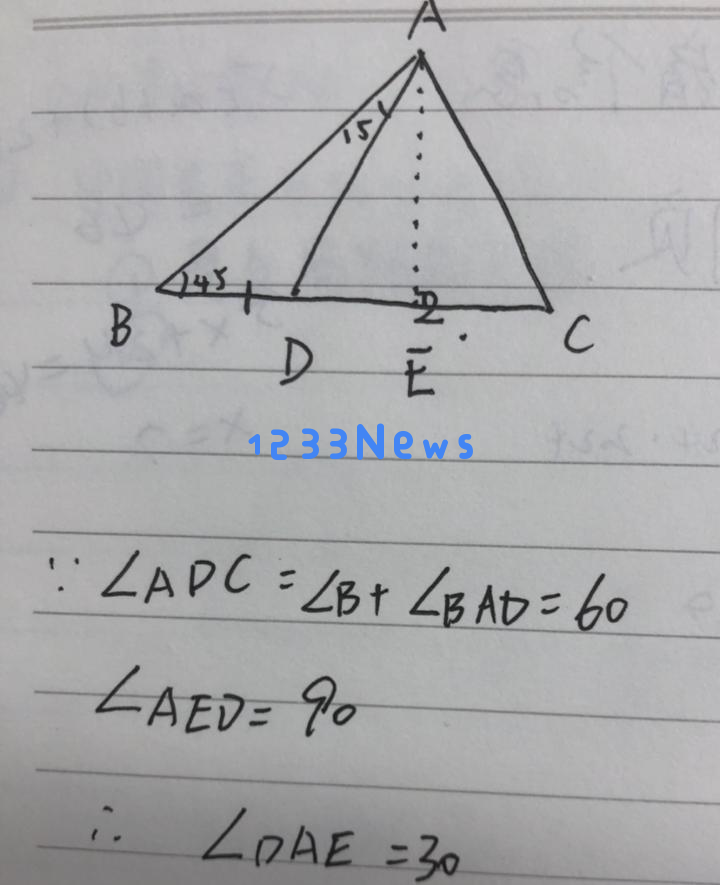 A
15
45
B
D
E
C
1233News
∵ ∠ADC = ∠B + ∠BAD = 60
∠AED = 90
∴ ∠DAE = 30